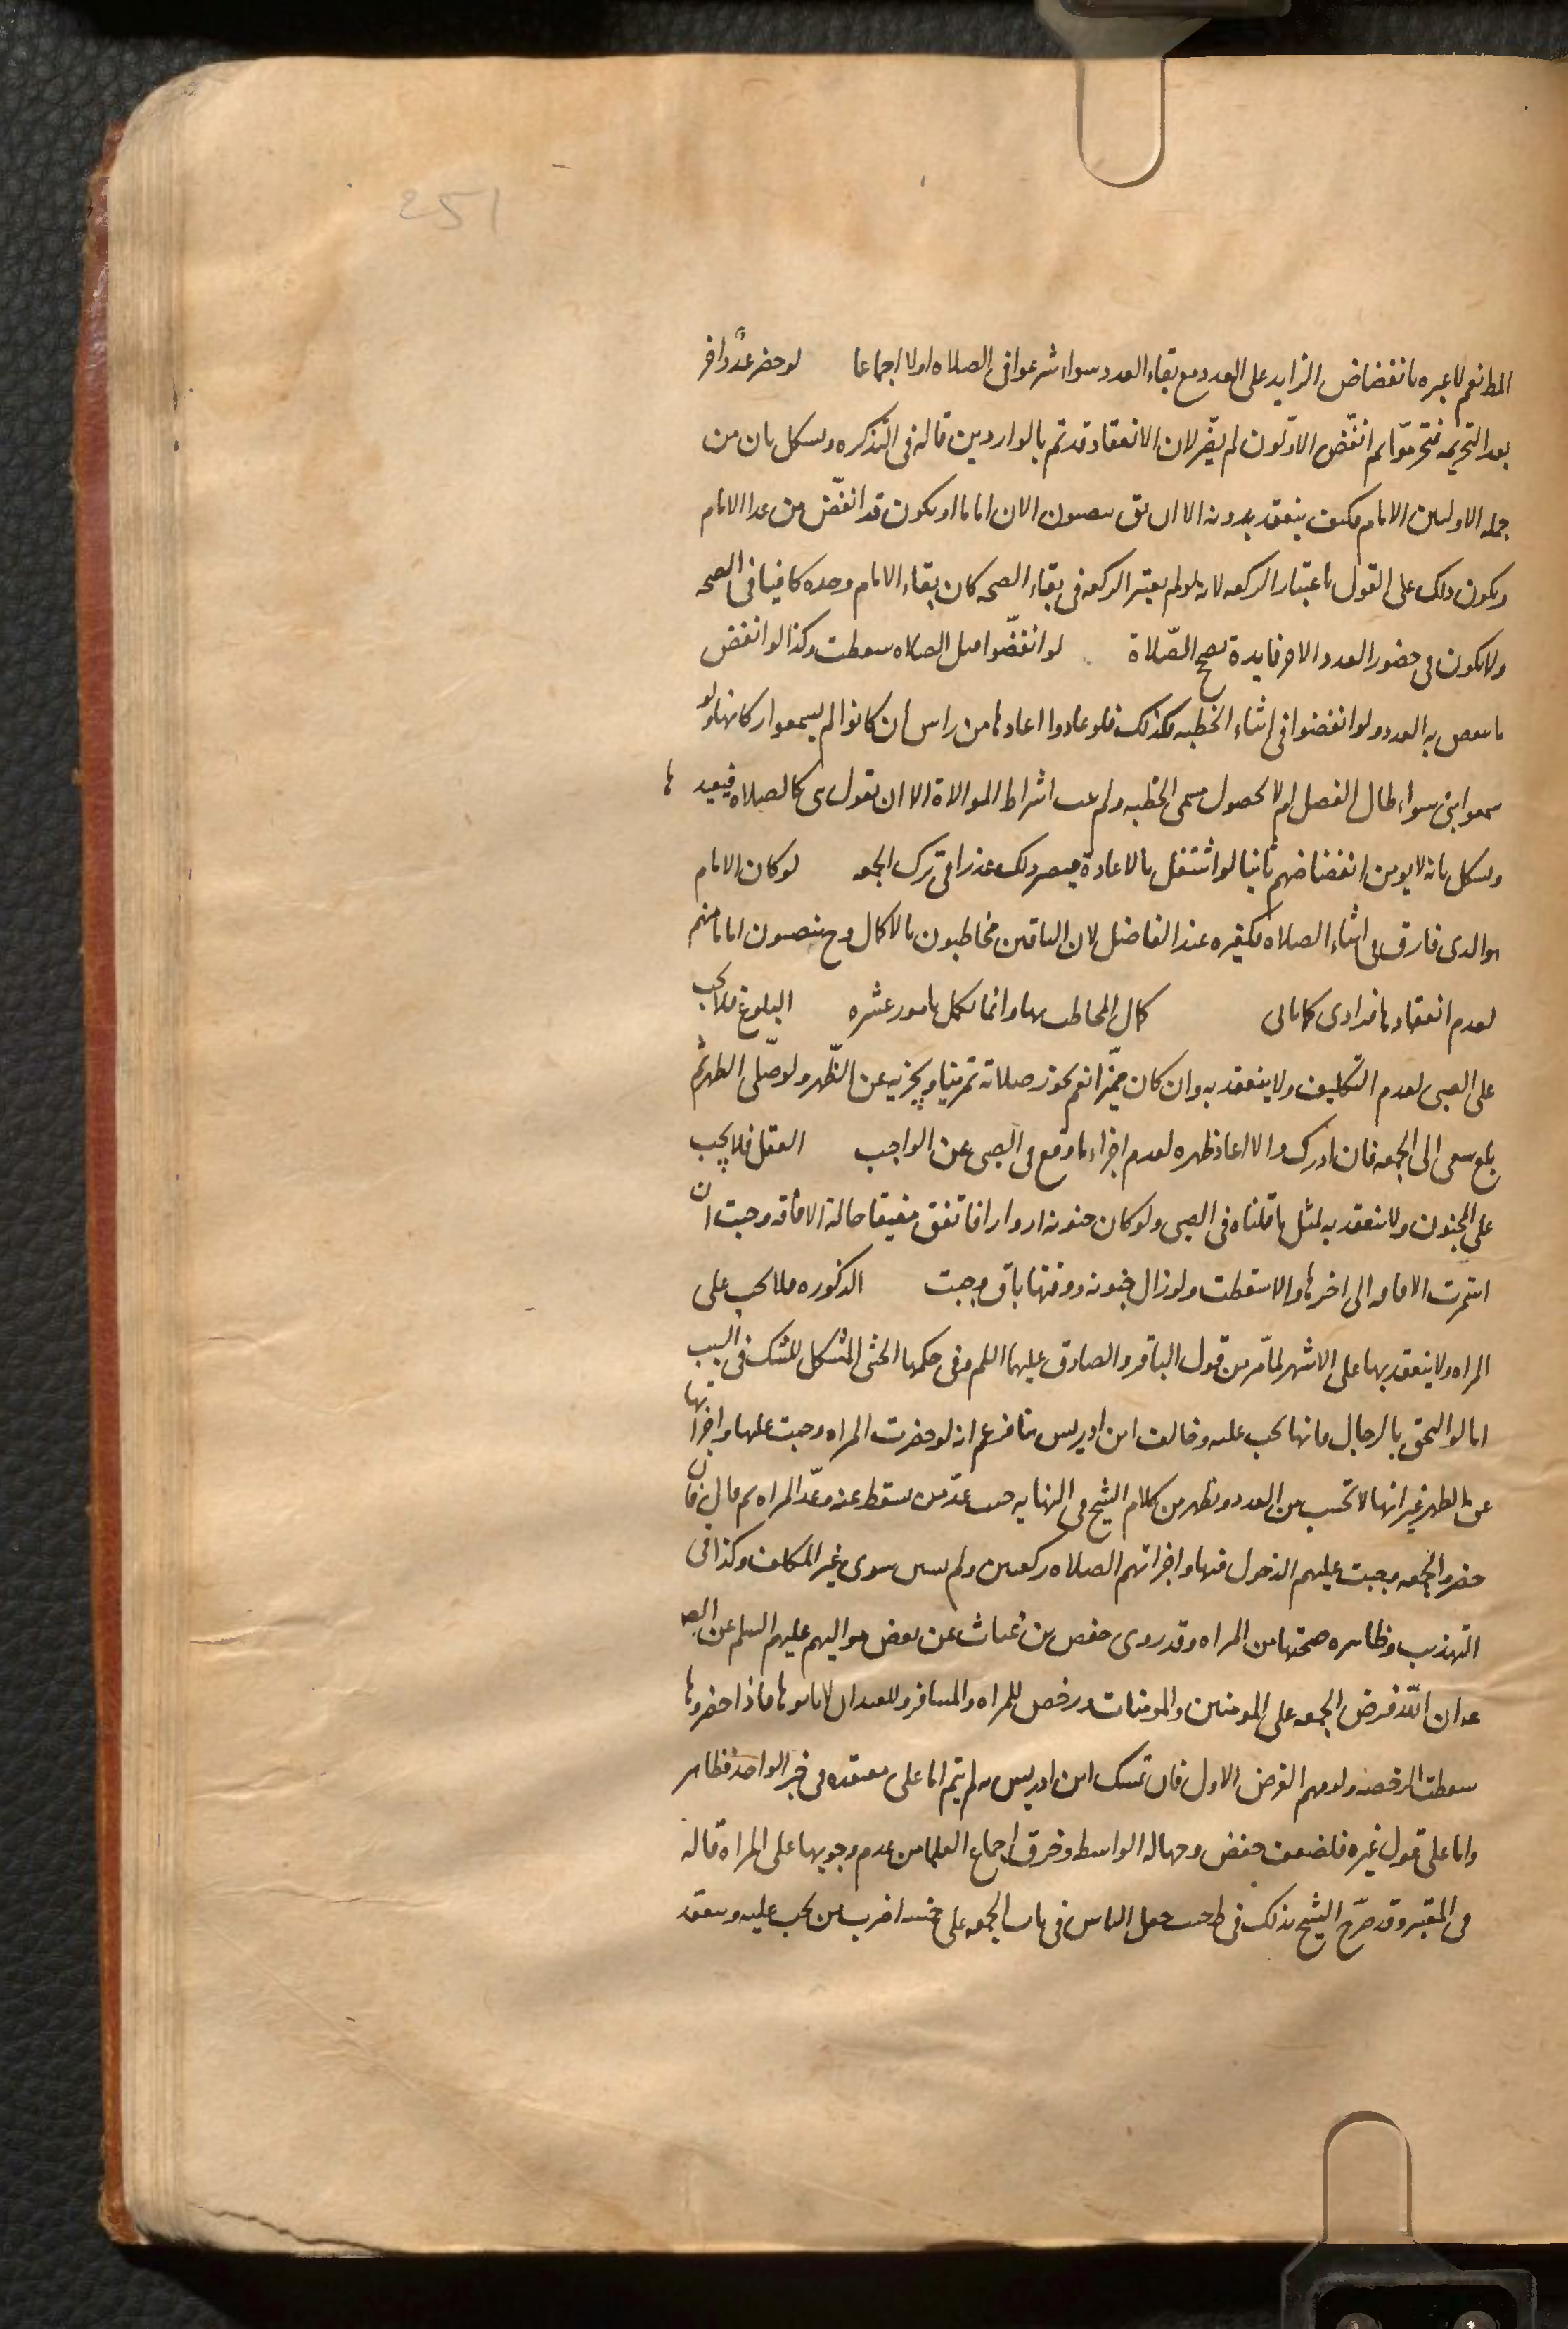 251
المط نعم لا عبره بانفضاض الزايد على العدد مع بقاء العدد سواء شرعوا فى الصلاه اولا اجماعا لو حضر عدد اخر
بعد التحريمه فتحرموا ثم انفض الاولون لم يضر لان الانعقاد قد تم بالواردين قاله فى التذكره ويشكل بان من
جمله الاولين الامام فكيف ينعقد بدونه الا ان يق ينصبون الان اماما او يكون قد انفض من عدا الامام
ويكون ذلك على القول باعتبار الركعه لانه لو لم يعتبر الركعه فى بقاء الصحه كان بقاء الامام وحده كافيا فى الصحه
ولا يكون فى حضور العدد الاخر فايدة تصح الصلاة لو انفضوا قبل الصلاه سقطت وكذا لو انفض
ما ينقص به العدد ولو انفضوا فى اثناء الخطبه فكذلك فلو عادوا اعادها من راس ان كانوا لم يسمعوا اركانها ولو
سمعوا بنى سواء طال الفصل ام لا لحصول مسمى الخطبه ولم يثبت اشتراط الموالاة الا ان نقول هى كالصلاه فيعيدها
ويشكل بانه لا يومن انفضاضهم ثانيا لو اشتغل بالاعادة فيصير ذلك عذرا فى ترك الجمعه لو كان الامام
هو الذى فارق فى اثناء الصلاه فكغيره عند الفاضل لان الباقين مخاطبون بالاكمال وح ينصبون اماما منهم
لعدم انعقادها فرادى كما ياتى كمال المخاطب بها وانما يكمل بامور عشره البلوغ فلا تجب
على الصبى لعدم التكليف ولا ينعقد به وان كان مميزا نعم تجوز صلاته تمرينا ويجزيه عن الظهر ولو صلى الظهر ثم
بلغ سعى الى الجمعه فان ادرك والا اعاد ظهره لعدم اجزاء ما وقع فى الصبى عن الواجب العقل فلا يجب
على المجنون ولا ينعقد به لمثل ما قلناه فى الصبى ولو كان جنونه ادوارا فاتفق مفيقا حالة الاقامه وجبت ان
استمرت الافاقه الى اخرها والا سقطت ولو زال جنونه ووقتها باق وجبت الذكوره فلا تجب على
المراه ولا ينعقد بها على الاشهر لما مر من قول الباقر والصادق عليهما السلم وفى حكمها الخنثى المشكل للشك فى السبب
اما لو التحق بالرجال فانها تجب عليه وخالف ابن ادريس هنا فزعم انه لو حضرت المراه وجبت عليها واجزاتها
عن الظهر غير انها لا تحسب من العدد ويظهر من كلام الشيخ فى النهايه حيث عد من سقط عنه وعد المراه ثم قال فان
حضروا الجمعه وجبت عليهم الدخول فيها واجزاتهم الصلاه ركعتين ولم يستثن سوى غير المكلف وكذا فى
التهذيب وظاهره صحتها من المراه وقد روى حفص بن غياث عن بعض مواليهم عليهم السلم عن الص
عه ان الله فرض الجمعه على المومنين والمومنات ورخص للمراه والمسافر والعبد ان لا ياتوها فاذا حضروها
سقطت الرخصه ولزمهم الفرض الاول فان تمسك ابن ادريس به لم يتم اما على معتقده فى خبر الواحد فظاهر
واما على قول غيره فلضعف حفص وجهاله الواسط وخرق اجماع العلما من عدم وجوبها على المراه قاله
فى المعتبر وقد صرح الشيخ بذلك فى ط حيث جعل الناس فى باب الجمعه على خمسه اضرب من تجب عليه وتنعقد